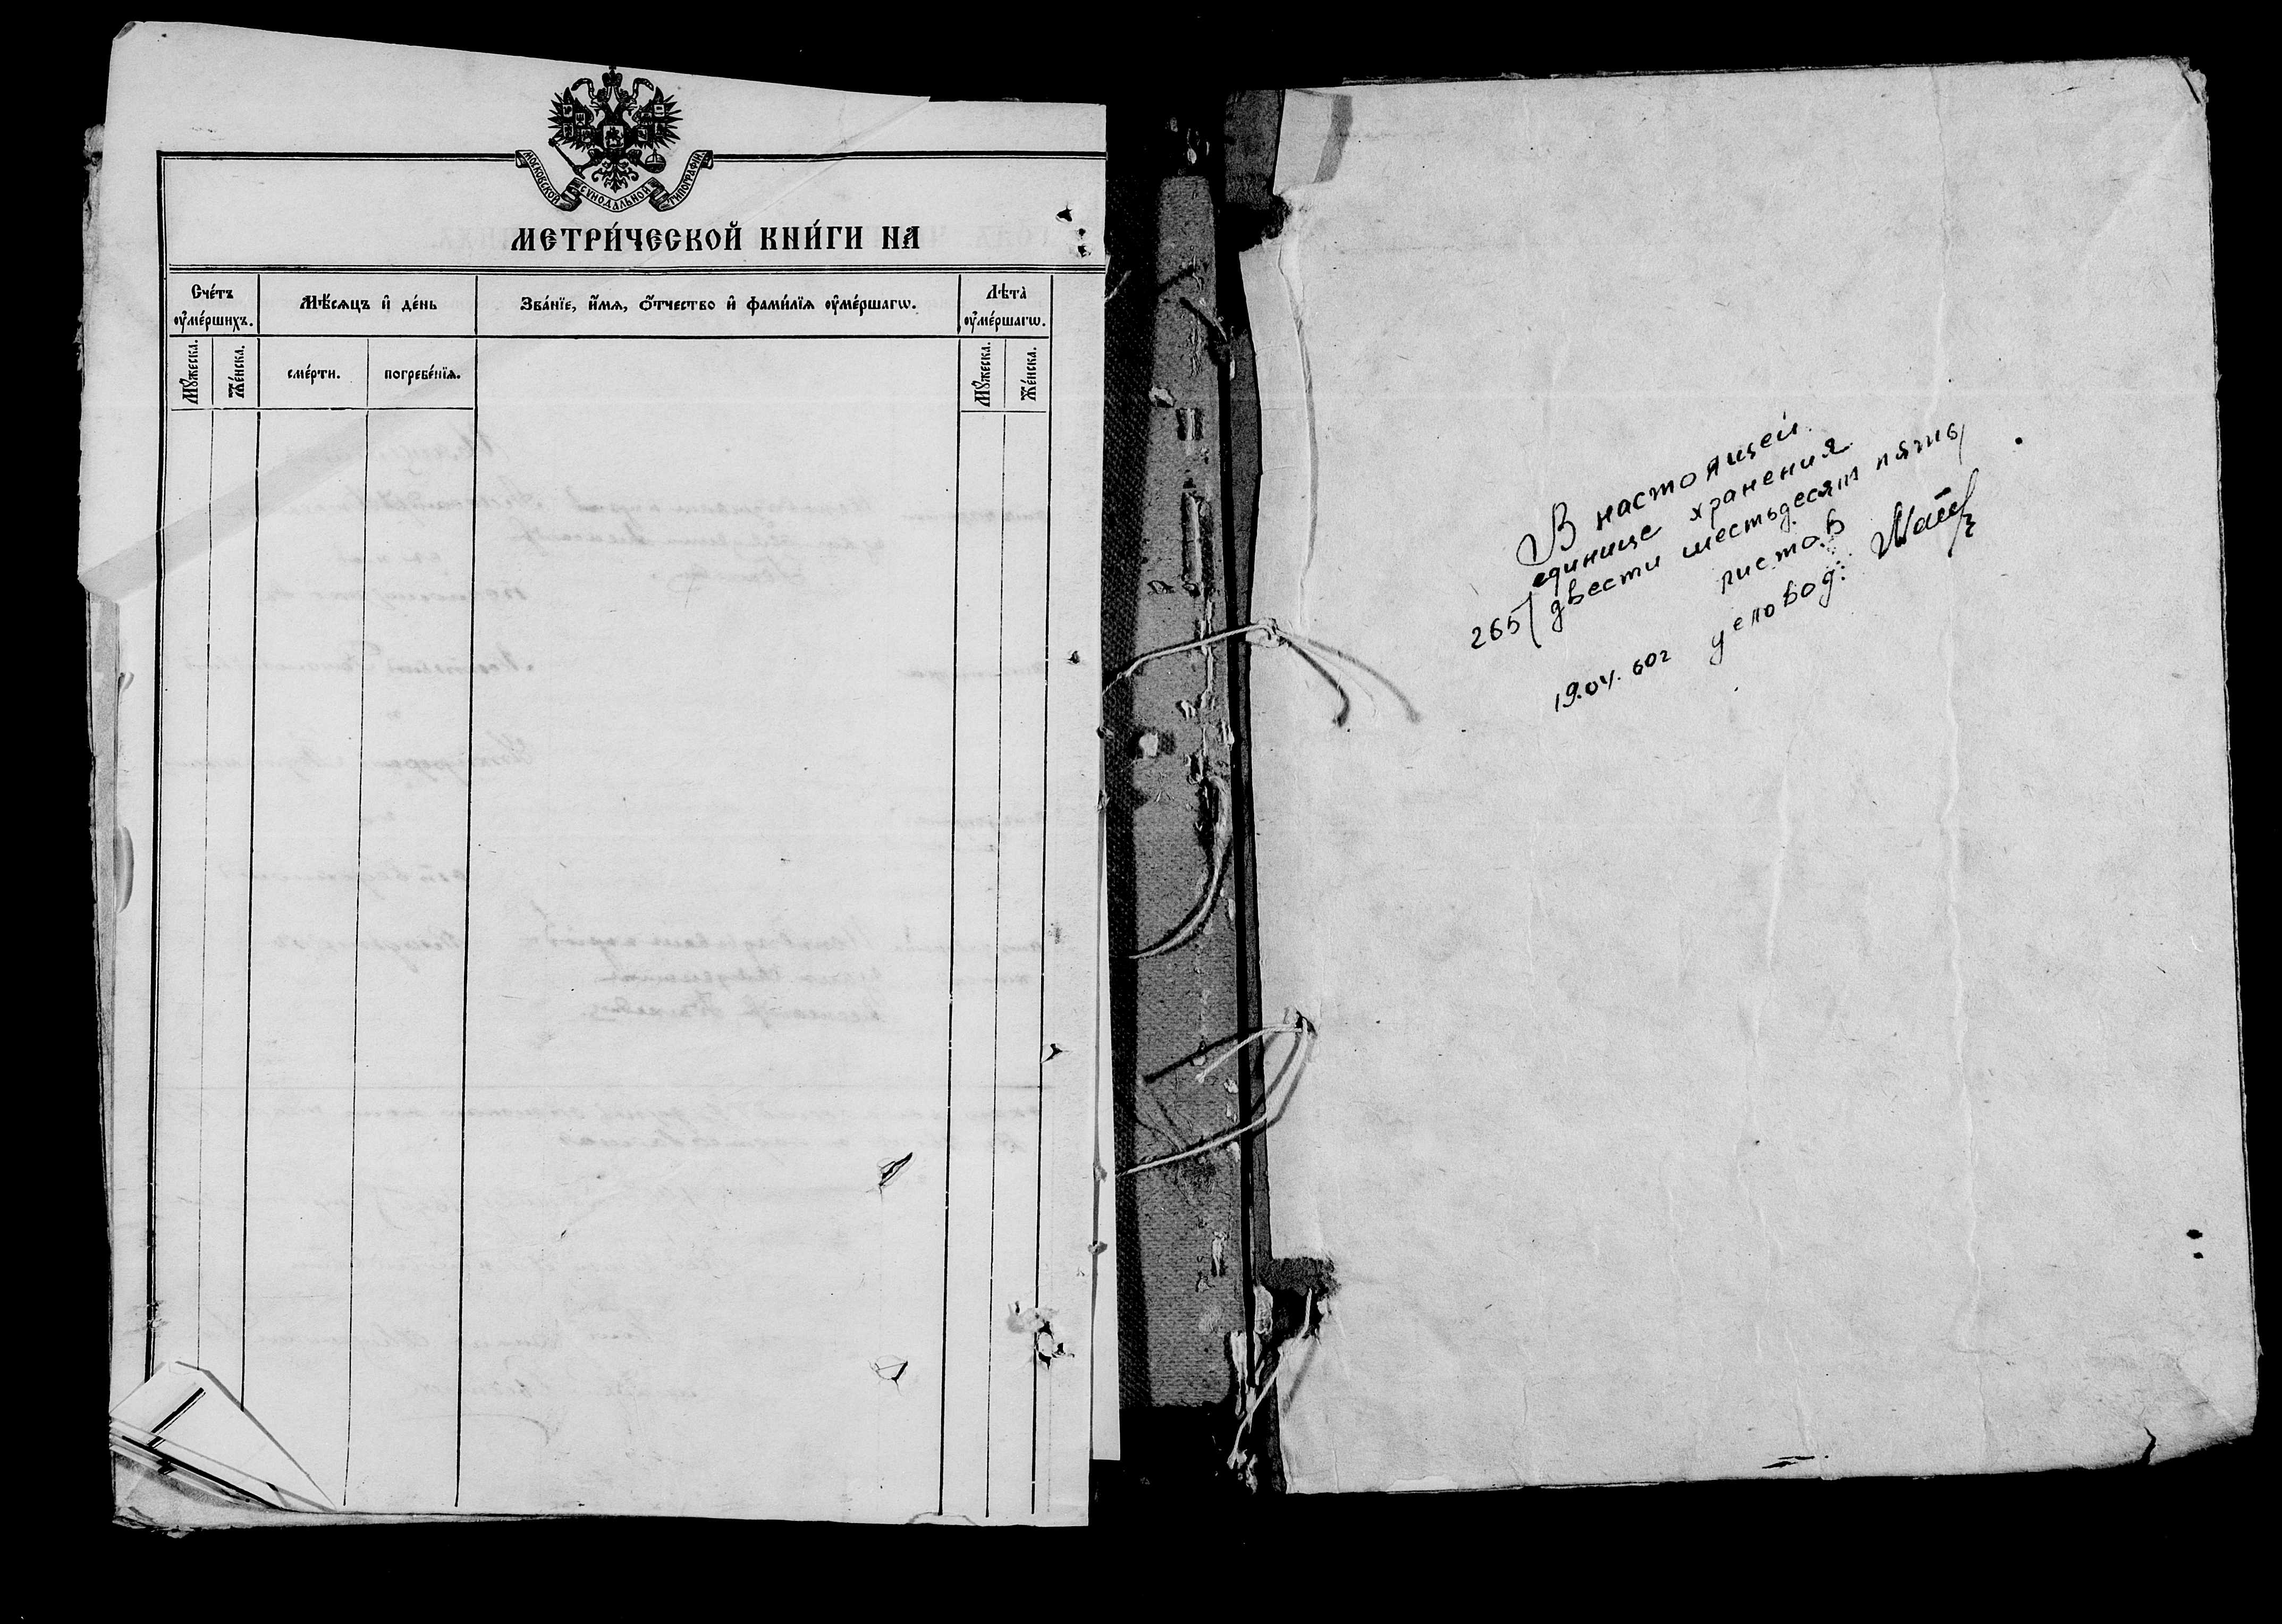 МОСКОВСКОЙ СѴНОДАЛЬНОЙ ТИПОГРАФІИ.
МЕТРИ́ЧЕСКОЙ КНИ́ГИ НА
Сче́тъ ᲂу҆ме́ршихъ.
Мѣ́сяцъ и҆ де́нь
Зва́нїе, и҆́мя, ѻ҆́тчество и҆ фами́лїя ᲂу҆ме́ршагѡ.
Лѣта̀ ᲂу҆ме́ршагѡ.
Мꙋ́жеска.
Же́нска.
сме́рти.
погребе́нїя.
Мꙋ́жеска.
Же́нска.
В настоящей
единице хранения
265/ двести шестьдесят пять/
листов
19.04.60г